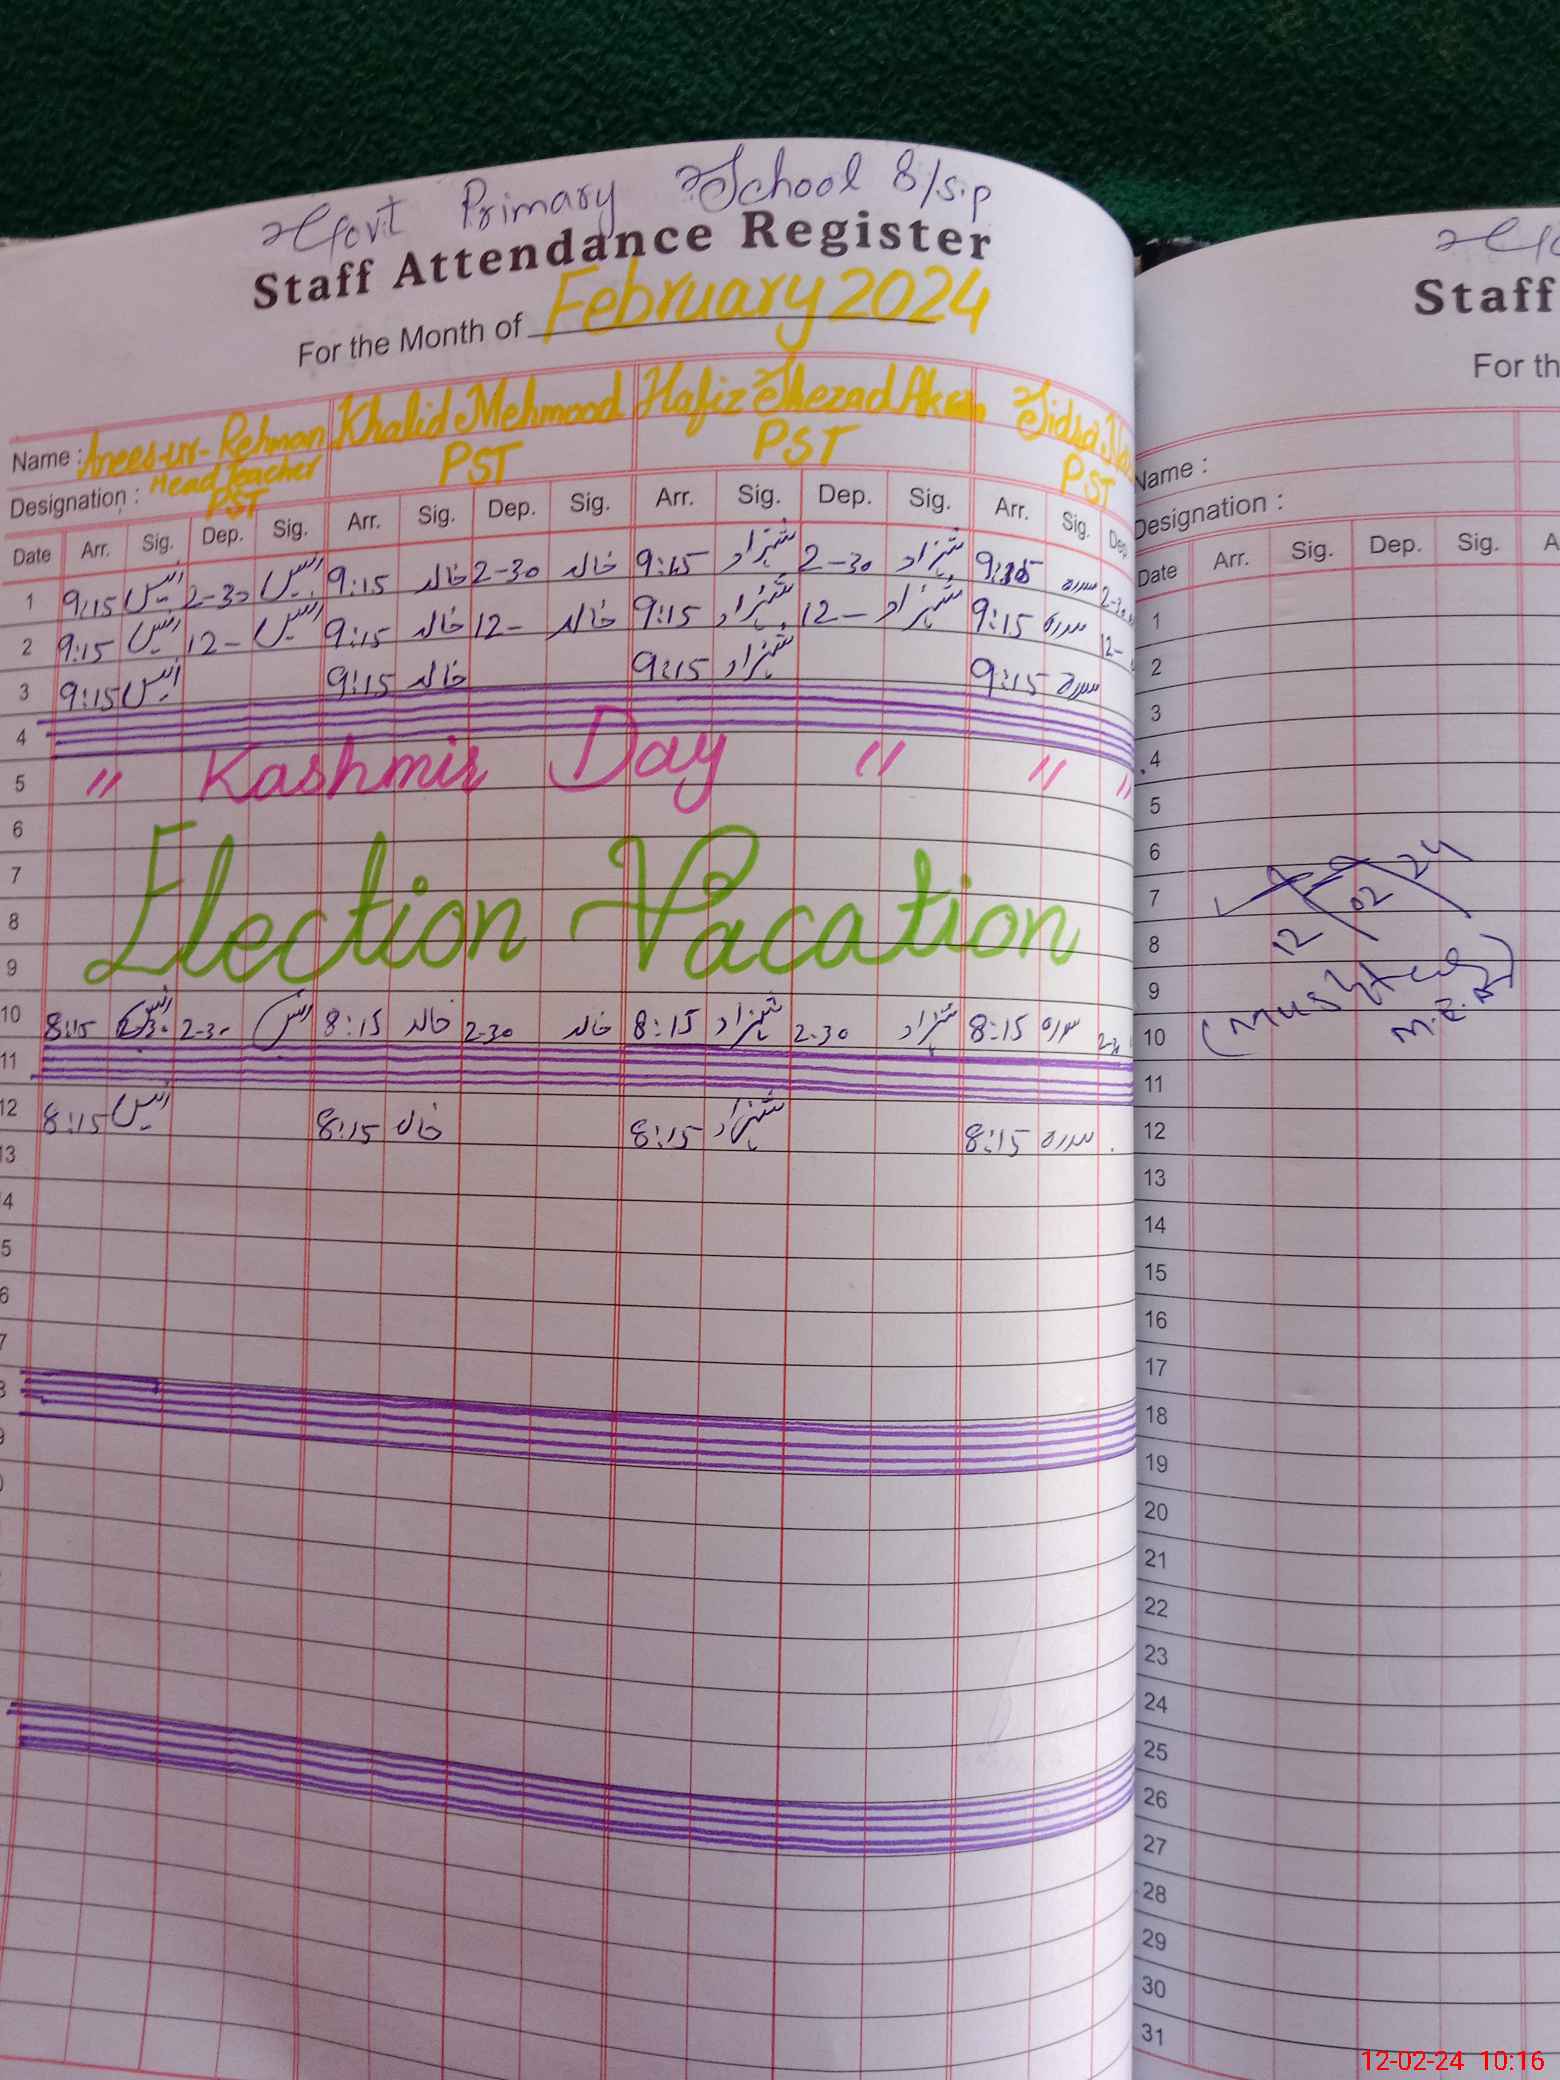 Govt Primary School 8/S.P
Staff Attendance Register
For the Month of February 2024
Name : Anees-ur-Rehman Khalid Mehmood Hafiz Shezad
Designation : Head Teacher PST PST PST PST
Date Arr. Sig. Dep. Sig. Arr. Sig. Dep. Sig. Arr. Sig. Dep. Sig. Arr. Sig. Dep.
1 9:15 انیس 2-30 انیس 9:15 خالد 2-30 خالد 9:15 شہزاد 2-30 شہزاد 9:15 سدرہ 2-30
2 9:15 انیس 12- انیس 9:15 خالد 12- خالد 9:15 شہزاد 12- شہزاد 9:15 سدرہ 12-
3 9:15 انیس 9:15 خالد 9:15 شہزاد 9:15 سدرہ
4
5 " Kashmir Day " " "
6
7
Election Vacation
8
9
10 8:15 2-30 انیس 8:15 خالد 2-30 خالد 8:15 شہزاد 2-30 شہزاد 8:15 سدرہ 2-30
11
12 8:15 انیس 8:15 خالد 8:15 شہزاد 8:15 سدرہ
13
4
5
6
7
8
9
Staff
For th
Name :
Designation :
Date Arr. Sig. Dep. Sig. A
1
2
3
4
5
6
7
12 02 24
8
9
(Mushtaq
10
11
12
13
14
15
16
17
18
19
20
21
22
23
24
25
26
27
28
29
30
31
12-02-24 10:16